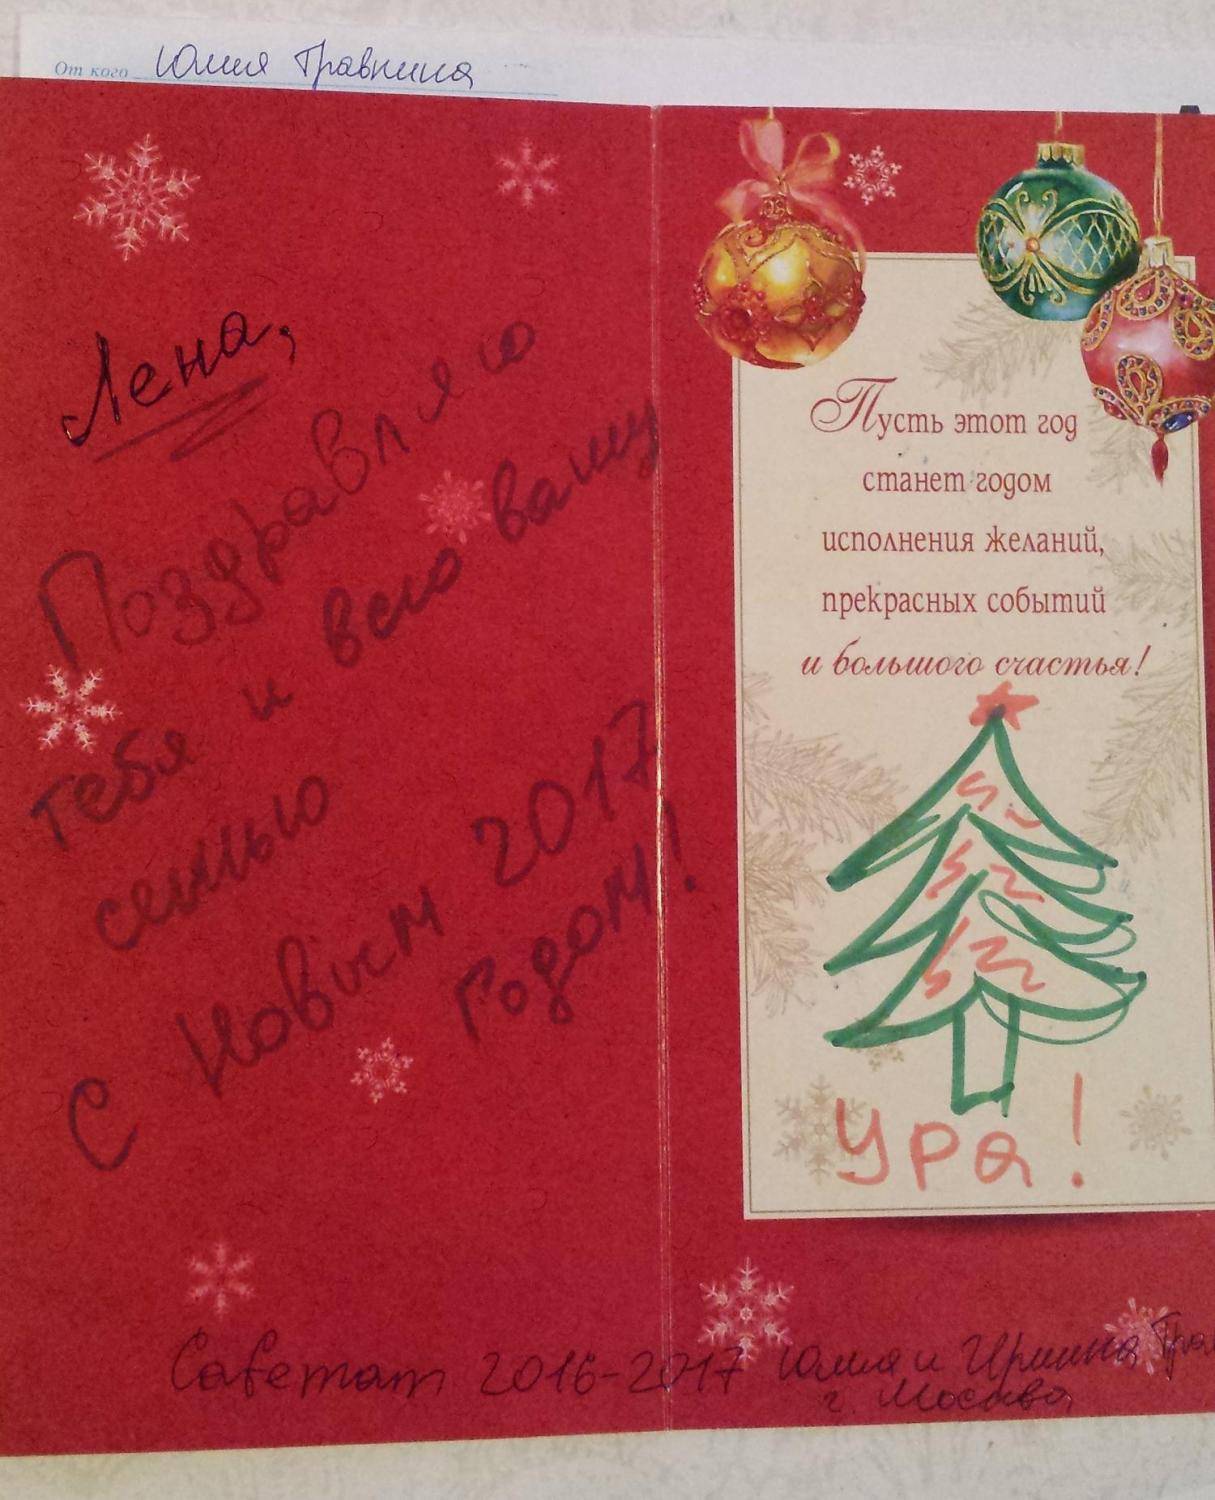 От кого Юлия Травкина
Лена,
Поздравляю
тебя и всю вашу
семью
С Новым 2017
Годом!
Пусть этот год
станет годом
исполнения желаний,
прекрасных событий
и большого счастья!
Ура!
Cafemam 2016-2017 Юлия и Ирина
г. Москва